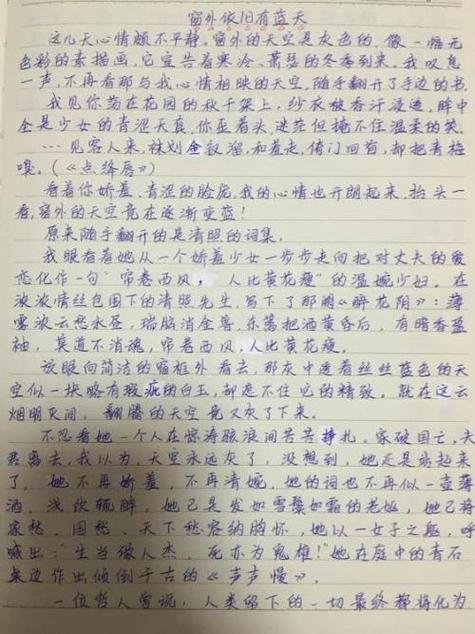 窗外依旧有蓝天
这几天心情颇不平静。窗外的天空是灰色的,像一幅无
色彩的素描画,它宣告着寒冷、萧瑟的冬季到来。我叹息
一声,不再看那与我心情相映的天空,随手翻开了手边的书。
我见你荡在花园的秋千架上,纱衣被香汗浸透,眸中
全是少女的青涩天真,你歪着头,迷茫但掩不住温柔的笑。
…见客人来,袜刬金钗溜,和羞走,倚门回首,却把青梅
嗅。(《点绛唇》)
看着你娇羞、青涩的脸庞,我的心情也开朗起来,抬头一
看,窗外的天空竟在逐渐变蓝!
原来随手翻开的是清照的词集。
我眼看着她从一个娇羞少女一步步走向把对丈夫的爱
恋化作一句"帘卷西风, 人比黄花瘦"的温婉少妇。在
浓浓情丝包围下的清照先生,写下了那阕《醉花阴》:薄
雾浓云愁永昼,瑞脑消金兽,东篱把酒黄昏后,有暗香盈
袖,莫道不消魂,帘卷西风,人比黄花瘦。
放眼向简洁的窗框外看去,那灰中透着丝丝蓝色的天
空似一块略有瑕疵的白玉,却遮不住它的精致。就在这云
烟明灭间,翻腾的天空竟又灰了下来。
不忍看她一个人在惊涛骇浪间苦苦挣扎。家破国亡,夫
君离去,我以为,天空永远灰了,没想到,她还是站起来
了,她不再娇羞,不再清婉,她的词也不再似一壶薄
酒,浅饮辄醉,她已是发如雪鬓如霜的老妪,她已将
家愁、国愁、天下愁容纳胸怀,她以一女子之躯,呼
喊出:"生当做人杰,死亦为鬼雄!"她在庭中的青石
桌边作出倾倒千古的《声声慢》。
一位哲人曾说,人类留下的一切最终都将化为